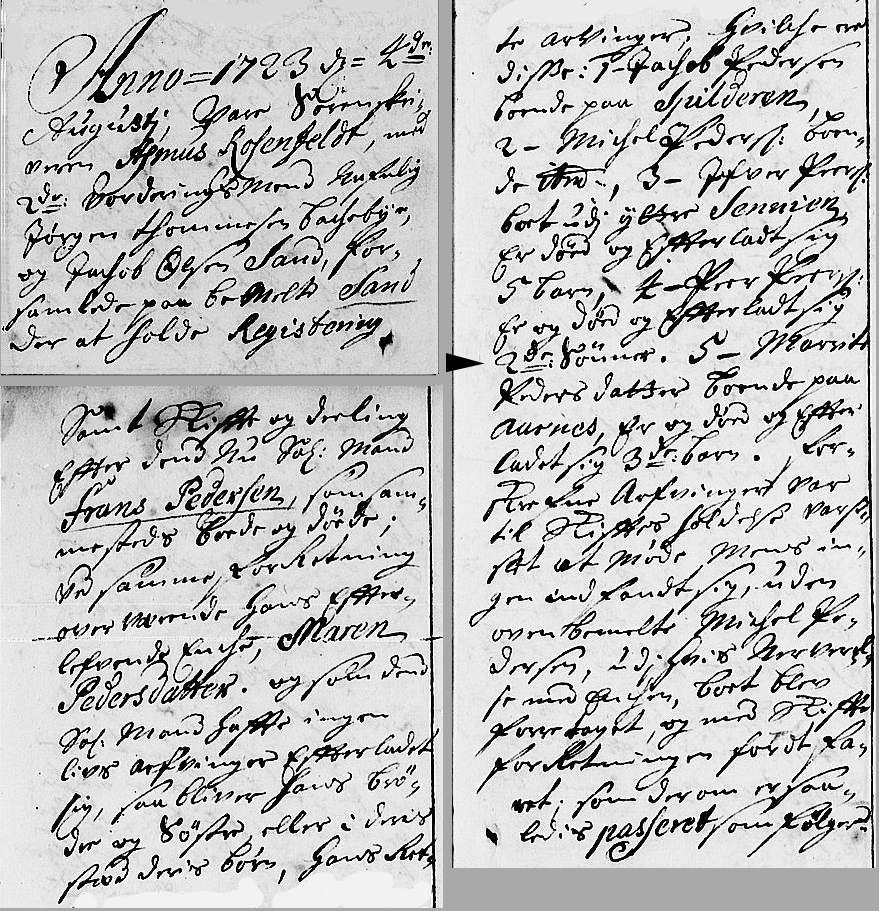 Anno = 1723 d: = 4de
Augustj, Vare Sorenskri-
veren Asmus Rosenfeldt, med
2de: Vorderings Mend Nafnlig
Jørgen thommesen bachebye,
og Jachob Olsen Sand, for-
samlede paa bemelte Sand
der at holde Registering
Samt Skiffte og deeling
Effter dend Nu Sal: Mand
Frans Pedersen, som sam-
mesteds boede og døde;
ved samme forRetning
overværende hans Effter-
lefvende Enche, Maren
Pedersdatter. og som dend
Sal: Mand haffte ingen
livs arfvinger Effterladet
sig, saa bliver hans brø-
dre og Søstre, eller i deris
sted deris børn, hans Ret-
te arvinger, hvilche ere
disse: 1- Jachob Pedersen
boende paa Spilderen,
2- Michel Pederss: boen-
de ibm, 3- Jofver Peers:
boet udj yttre Sennien
Er død og Effterladt sig
5 barn, 4- Peer Peers:
Er og død og Effterladt sig
2de: Sønner. 5- Marrite
Peders datter boende paa
Aarnes, Er og død og Effter
ladet sig 3de: barn. for-
skrefne Arfvinger var
til Skifftes holdelse vars-
let at møde Mens in-
gen indfandt sig, uden
ovenbemelte Michel Pe-
dersen, udj hvis Nærværel-
se med Enchen, boet blev
forretaget, og med Skiffte
forRetningen fordt fa-
ret; som derom er saa-
ledis passeret som følger: